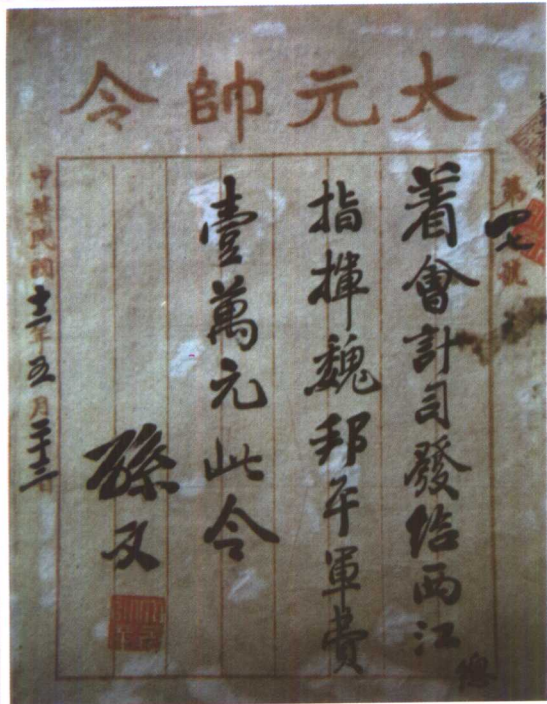 大元帥令
第四七號
着會計司發給西江總
指揮魏邦平軍費
壹萬元此令
孫文
中華民國十二年五月二十三日